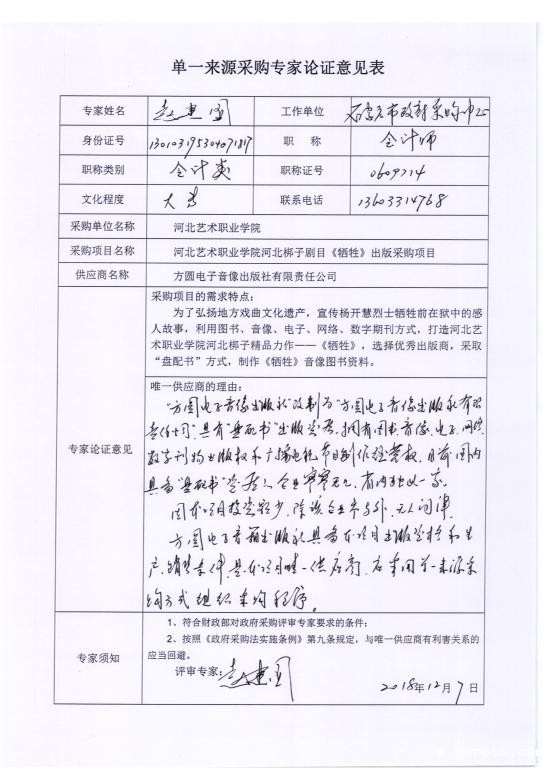 单一来源采购专家论证意见表
专家姓名 赵建国 工作单位 石家庄市政府采购中心
身份证号 职 称 会计师
职称类别 会计类 职称证号 0609714
文化程度 大专 联系电话 13603314768
采购单位名称 河北艺术职业学院
采购项目名称 河北艺术职业学院河北梆子剧目《牺牲》出版采购项目
供应商名称 方圆电子音像出版社有限责任公司
专家论证意见
采购项目的需求特点：
为了弘扬地方戏曲文化遗产，宣传杨开慧烈士牺牲前在狱中的感
人故事，利用图书、音像、电子、网络、数字期刊方式，打造河北艺
术职业学院河北梆子精品力作——《牺牲》，选择优秀出版商，采取
“盘配书”方式，制作《牺牲》音像图书资料。
唯一供应商的理由：
“方圆电子音像出版社”改制为“方圆电子音像出版社有限
责任公司”具有“盘配书”出版资质，拥有图书音像、电子、网络、
数字刊物出版权和广播电视节目制作经营权，目前国内
具备“盘配书”资质企业寥寥无几，省内独此一家。
因本项目投资较少，除该企业参与外，无人问津。
方圆电子音像出版社具备本项目出版资格和生
产、销售条件，是本项目唯一供应商，应采用单一来源采
购方式组织采购程序。
专家须知
1、符合财政部对政府采购评审专家要求的条件；
2、按照《政府采购法实施条例》第九条规定，与唯一供应商有利害关系的
应当回避。
评审专家：赵建国
2018年12月7日